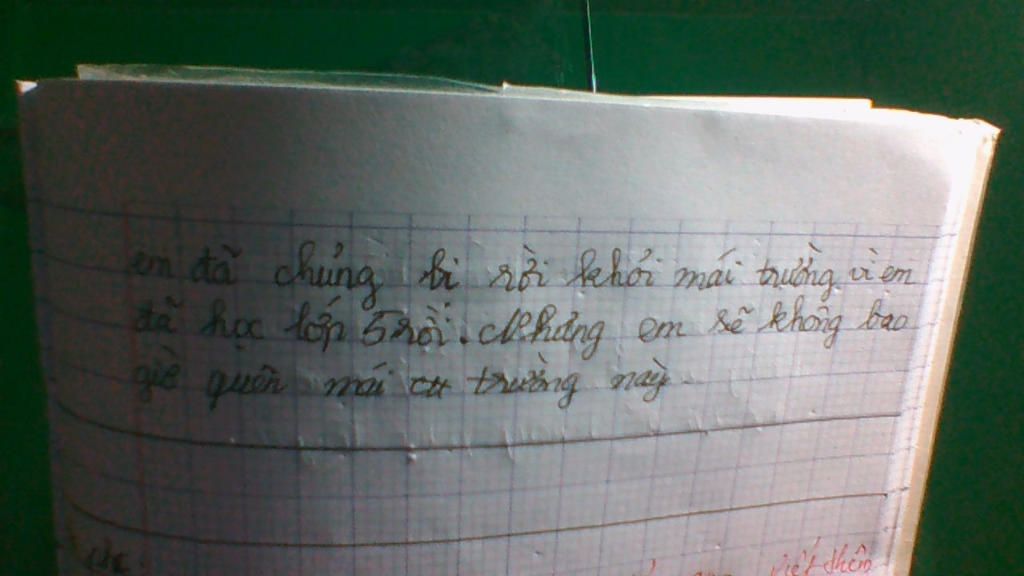 em đã chửng bi rời khỏi mái trường vì em
đã học lớp 5 rồi. Nhưng em sẽ không bao
giờ quên mái trường này.
viết thêm